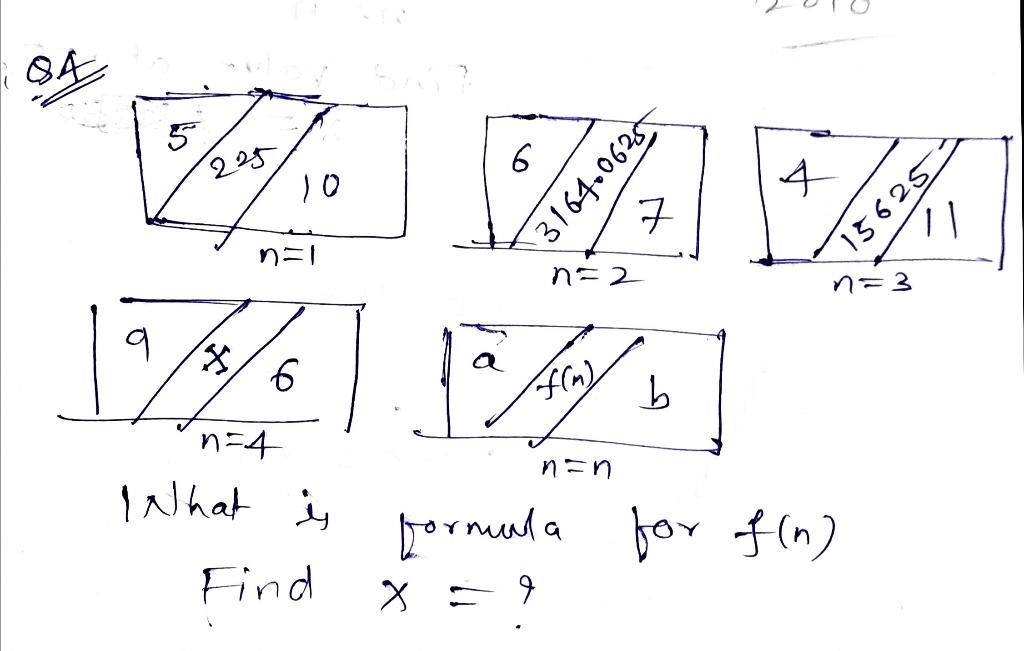 Q4
5 225 10
n=1
6 3164.0625 7
n=2
4 15625 11
n=3
9 x 6
n=4
a f(n) b
n=n
What is formula for f(n)
Find x = ?